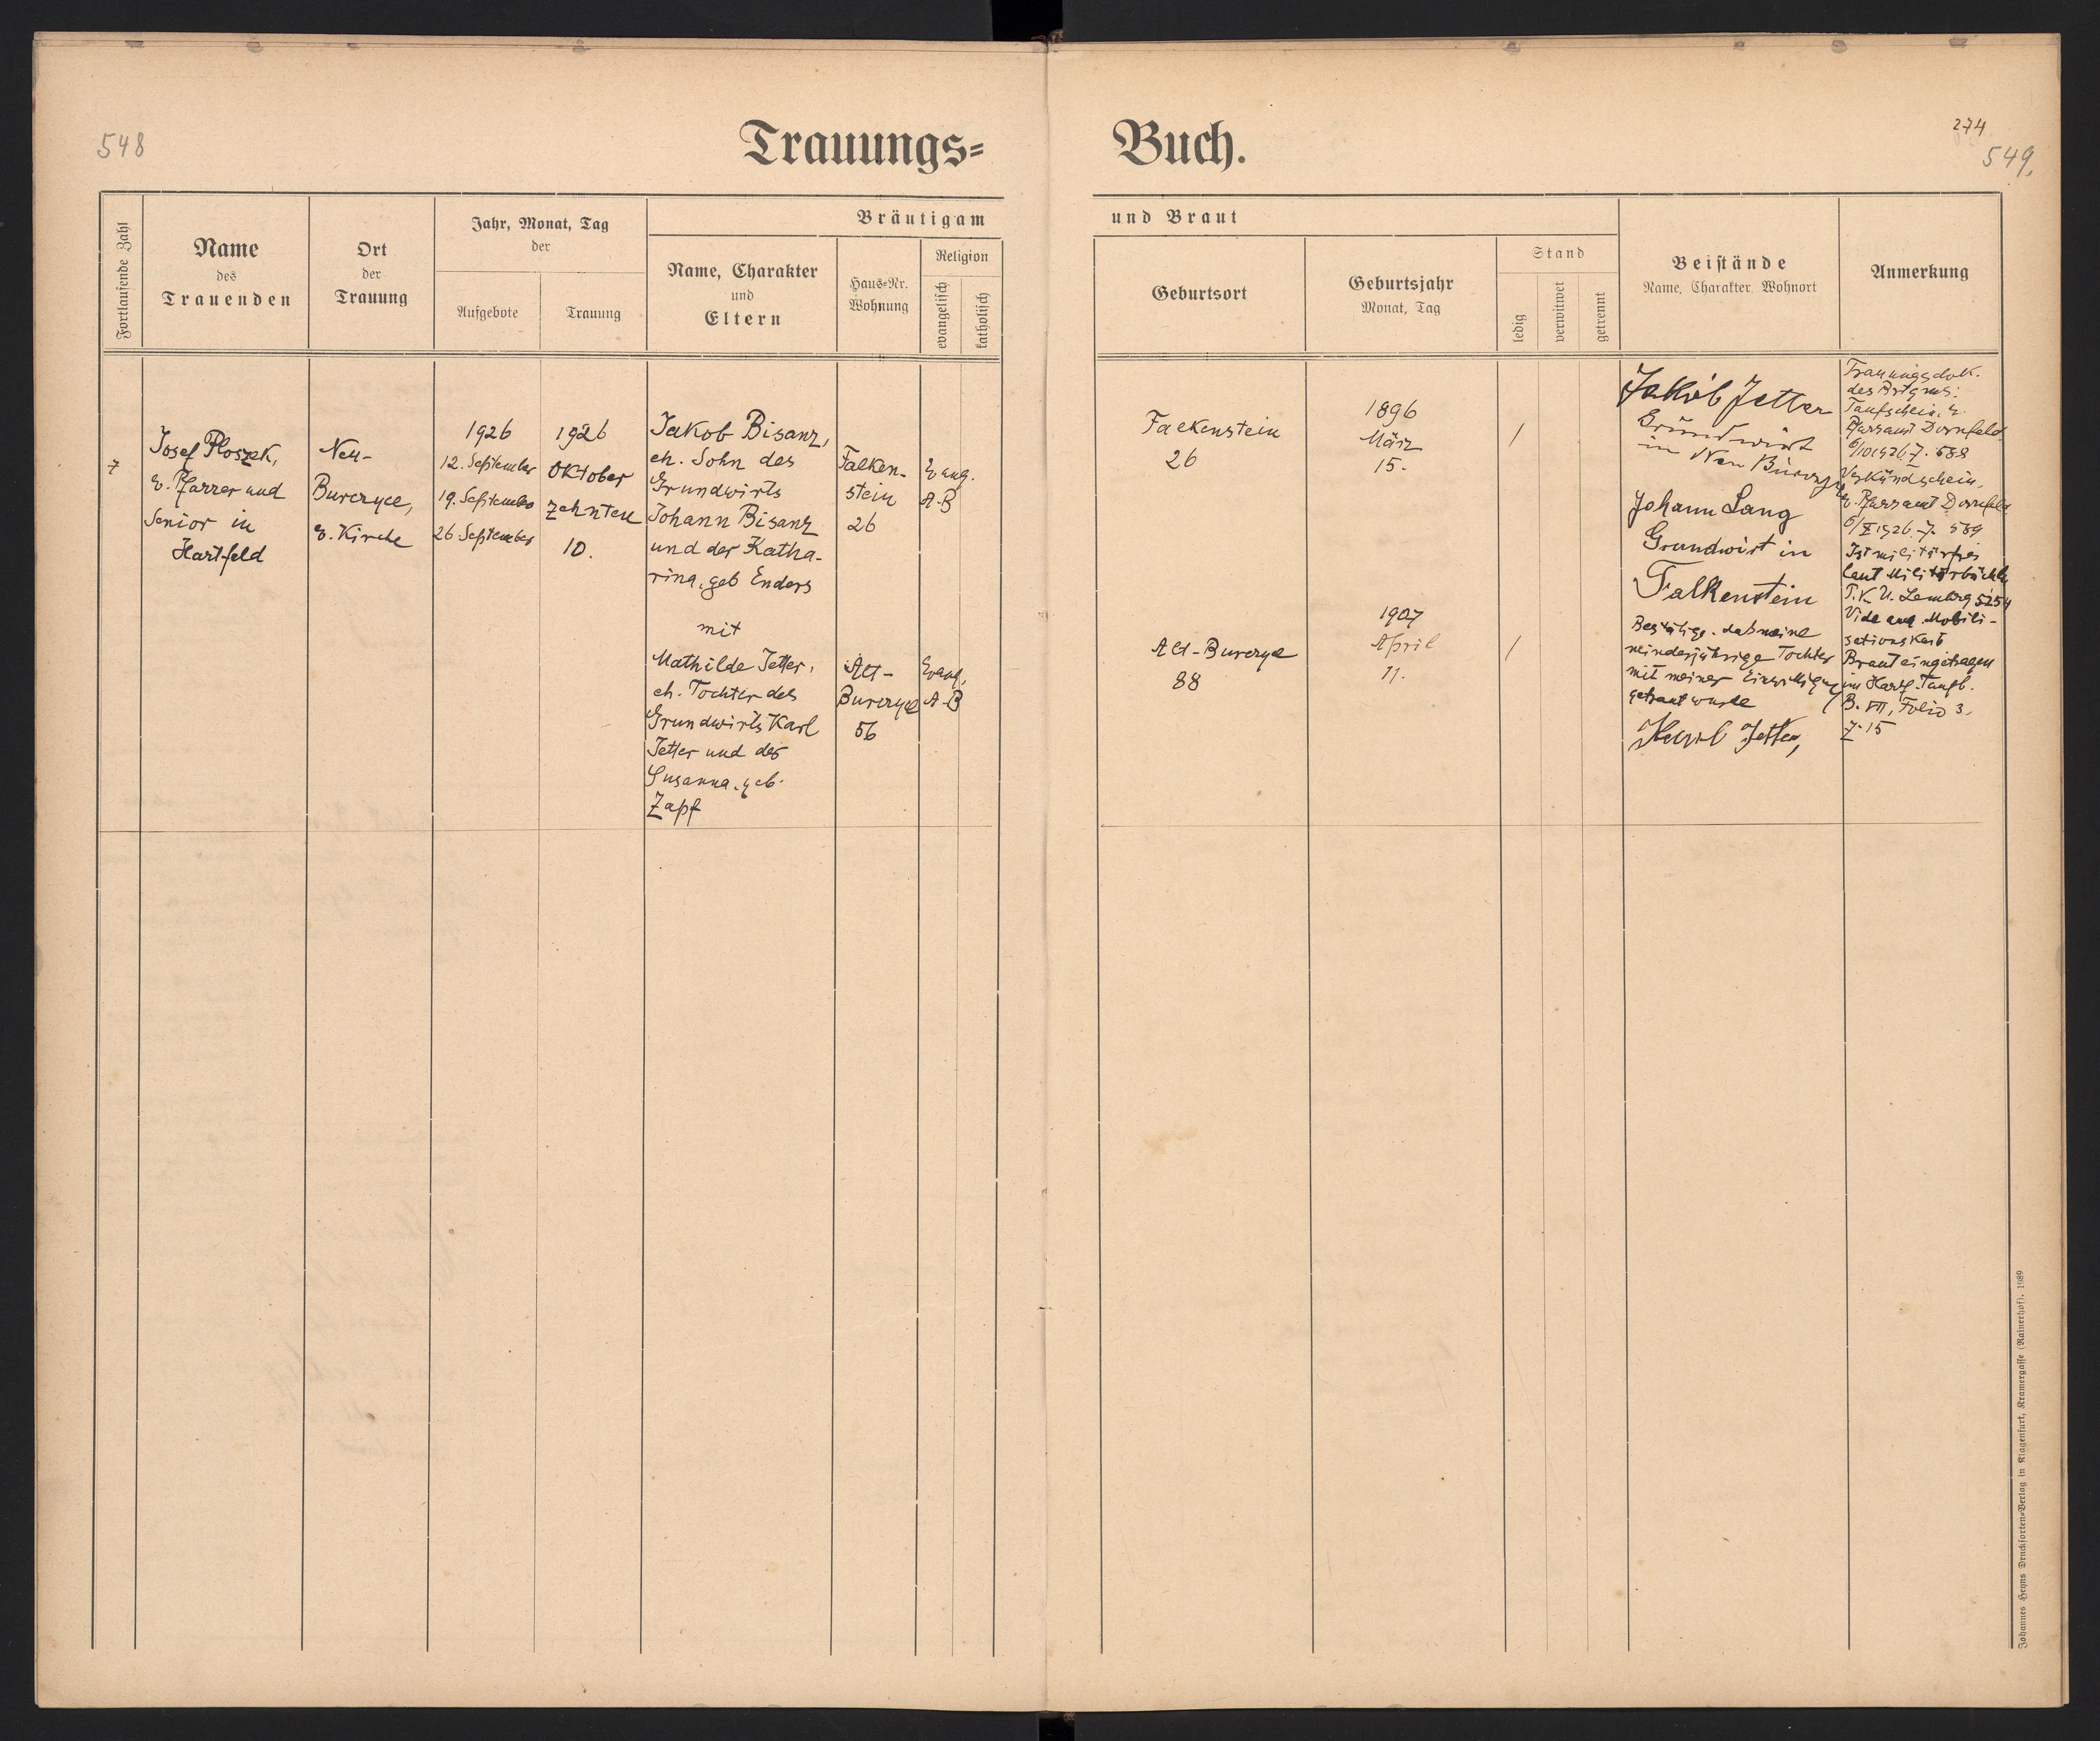 548
Trauungs=
Buch.
274
549.
Fortlaufende Zahl
Name
des
Trauenden
Ort
der
Trauung
Jahr, Monat, Tag
der
Aufgebote
Trauung
Bräutigam
Name, Charakter
und
Eltern
Haus-Nr.
Wohnung
Religion
evangelisch
katholisch
und Braut
Geburtsort
Geburtsjahr
Monat, Tag
Stand
ledig
verwitwet
getrennt
Beistände
Name, Charakter, Wohnort
Anmerkung
7
Josef Ploszek,
e. Pfarrer und
Senior in
Hartfeld
Neu-
Burczyce,
e. Kirche
1926
12. September
19. September
26 September
1926
Oktober
zehnten
10.
Jakob Bisanz,
eh. Sohn des
Grundwirts
Johann Bisanz
und der Katha-
rina, geb Enders
mit
Mathilde Jetter,
eh. Tochter des
Grundwirts Karl
Jetter und der
Susanna, geb.
Zapf
Falken-
stein
26
Alt-
Burczyce
56
Evang.
A.B
Evang.
A.B
Falkenstein
26
Alt-Burczyce
88
1896
März
15.
1907
April
11.
/
/
Jakob Jetter
Grundwirt
in Neu Burczyce
Johann Lang
Grundwirt in
Falkenstein
Bestätige, daß meine
minderjährige Tochter
mit meiner Einwilligung
getraut wurde
Jetter,
Trauungsdok.
des Brtgms:
Taufschein, e.
Pfarramt Dornfeld
6/10 1926 Z. 588
Verkündschein,
e. Pfarramt Dornfeld
6/X 1926. Z. 589
Ist militärfrei
laut Militärbüchl.
P.K.U. Lemberg 5254
Vide aug. Mobili-
sationskart
Braut eingetragen
im Hartf. Taufb.
B. VII, Folio 3,
Z. 15
Johannes Heyns Drucksorten-Verlag in Klagenfurt, Kramergasse (Rainerhof). 1989